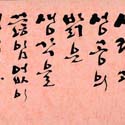 성공의
밝은
생각을
끊임없이